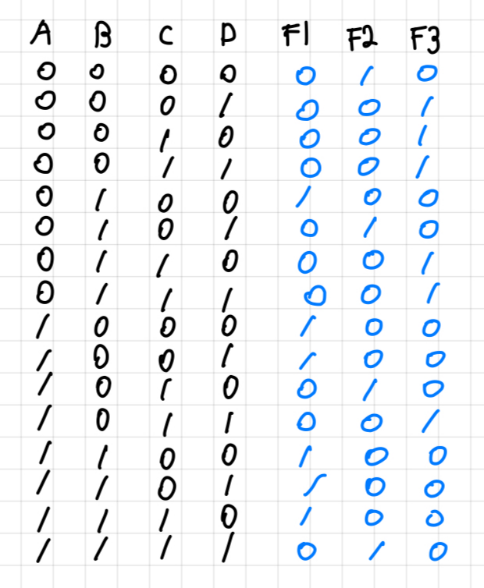 A B C D F1 F2 F3
0 0 0 0 0 1 0
0 0 0 1 0 0 1
0 0 1 0 0 0 1
0 0 1 1 0 0 1
0 1 0 0 1 0 0
0 1 0 1 0 1 0
0 1 1 0 0 0 1
0 1 1 1 0 0 1
1 0 0 0 1 0 0
1 0 0 1 1 0 0
1 0 1 0 0 1 0
1 0 1 1 0 0 1
1 1 0 0 1 0 0
1 1 0 1 1 0 0
1 1 1 0 1 0 0
1 1 1 1 0 1 0